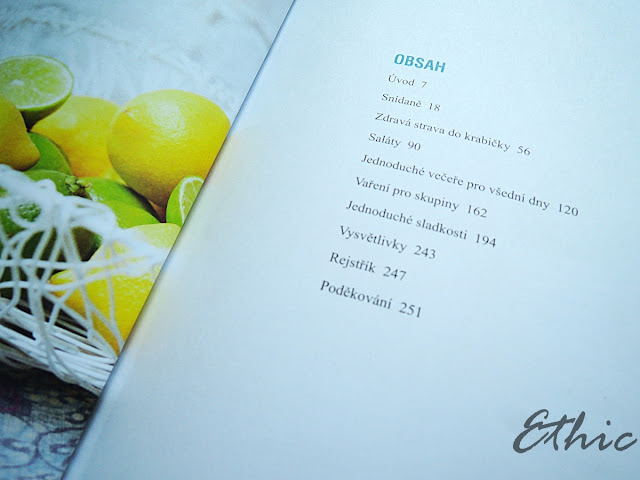 OBSAH
Úvod 7
Snídaně 18
Zdravá strava do krabičky 56
Saláty 90
Jednoduché večeře pro všední dny 120
Vaření pro skupiny 162
Jednoduché sladkosti 194
Vysvětlivky 243
Rejstřík 247
Poděkování 251
Ethic